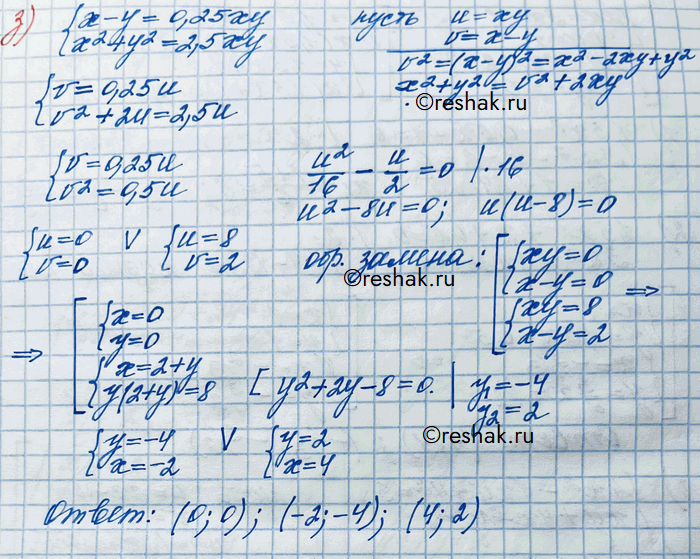 з) {x-y=0,25xy
{x²+y²=2,5xy
пусть u=xy
v=x-y
v²=(x-y)²=x²-2xy+y²
x²+y²=v²+2xy
©reshak.ru
{v=0,25u
{v²+2u=2,5u
{v=0,25u
{v²=0,5u
u²/16 - u/2 =0 |·16
u²-8u=0; u(u-8)=0
{u=0 V {u=8
{v=0 {v=2
обр. замена: [{xy=0
{x-y=0
{xy=8
{x-y=2 ⇒
©reshak.ru
⇒ [{x=0
{y=0
{x=2+y
{y(2+y)=8 [y²+2y-8=0. | y₁=-4
y₂=2
{y=-4 V {y=2
{x=-2 {x=4
©reshak.ru
Ответ: (0; 0); (-2; -4); (4; 2)